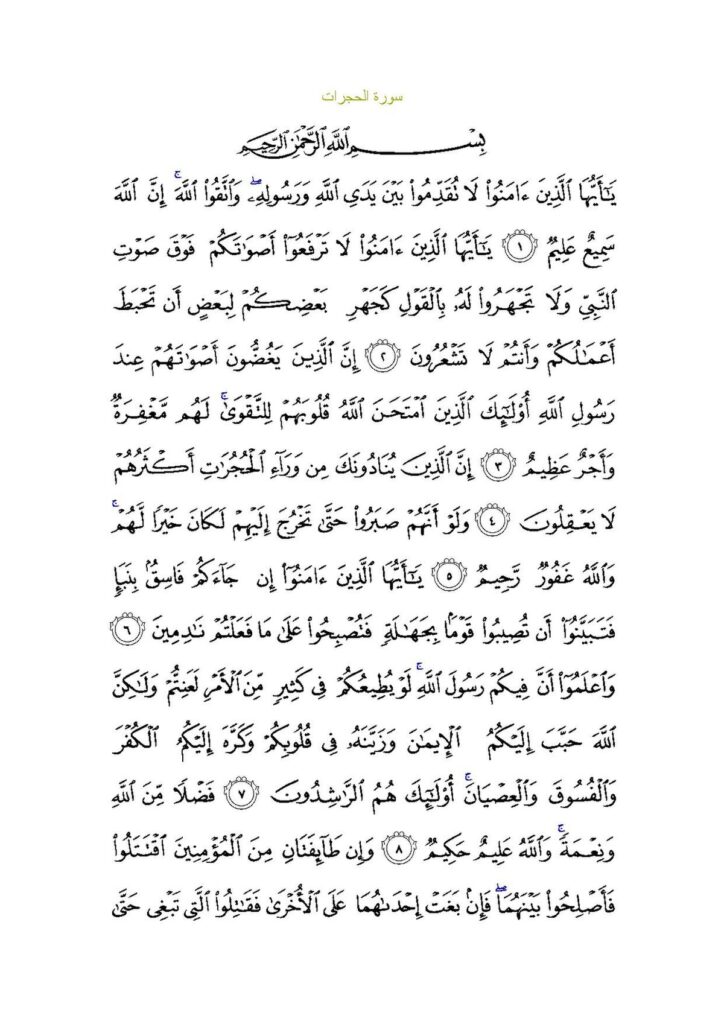 سورة الحجرات
بِسْمِ ٱللَّهِ ٱلرَّحْمَٰنِ ٱلرَّحِيمِ
يَٰٓأَيُّهَا ٱلَّذِينَ ءَامَنُوا۟ لَا تُقَدِّمُوا۟ بَيْنَ يَدَىِ ٱللَّهِ وَرَسُولِهِۦ ۖ وَٱتَّقُوا۟ ٱللَّهَ ۚ إِنَّ ٱللَّهَ
سَمِيعٌ عَلِيمٌ ١ يَٰٓأَيُّهَا ٱلَّذِينَ ءَامَنُوا۟ لَا تَرْفَعُوٓا۟ أَصْوَٰتَكُمْ فَوْقَ صَوْتِ
ٱلنَّبِىِّ وَلَا تَجْهَرُوا۟ لَهُۥ بِٱلْقَوْلِ كَجَهْرِ بَعْضِكُمْ لِبَعْضٍ أَن تَحْبَطَ
أَعْمَٰلُكُمْ وَأَنتُمْ لَا تَشْعُرُونَ ٢ إِنَّ ٱلَّذِينَ يَغُضُّونَ أَصْوَٰتَهُمْ عِندَ
رَسُولِ ٱللَّهِ أُو۟لَٰٓئِكَ ٱلَّذِينَ ٱمْتَحَنَ ٱللَّهُ قُلُوبَهُمْ لِلتَّقْوَىٰ ۚ لَهُم مَّغْفِرَةٌ
وَأَجْرٌ عَظِيمٌ ٣ إِنَّ ٱلَّذِينَ يُنَادُونَكَ مِن وَرَآءِ ٱلْحُجُرَٰتِ أَكْثَرُهُمْ
لَا يَعْقِلُونَ ٤ وَلَوْ أَنَّهُمْ صَبَرُوا۟ حَتَّىٰ تَخْرُجَ إِلَيْهِمْ لَكَانَ خَيْرًا لَّهُمْ ۚ
وَٱللَّهُ غَفُورٌ رَّحِيمٌ ٥ يَٰٓأَيُّهَا ٱلَّذِينَ ءَامَنُوٓا۟ إِن جَآءَكُمْ فَاسِقٌۢ بِنَبَإٍ
فَتَبَيَّنُوٓا۟ أَن تُصِيبُوا۟ قَوْمًۢا بِجَهَٰلَةٍ فَتُصْبِحُوا۟ عَلَىٰ مَا فَعَلْتُمْ نَٰدِمِينَ ٦
وَٱعْلَمُوٓا۟ أَنَّ فِيكُمْ رَسُولَ ٱللَّهِ ۚ لَوْ يُطِيعُكُمْ فِى كَثِيرٍ مِّنَ ٱلْأَمْرِ لَعَنِتُّمْ وَلَٰكِنَّ
ٱللَّهَ حَبَّبَ إِلَيْكُمُ ٱلْإِيمَٰنَ وَزَيَّنَهُۥ فِى قُلُوبِكُمْ وَكَرَّهَ إِلَيْكُمُ ٱلْكُفْرَ
وَٱلْفُسُوقَ وَٱلْعِصْيَانَ ۚ أُو۟لَٰٓئِكَ هُمُ ٱلرَّٰشِدُونَ ٧ فَضْلًا مِّنَ ٱللَّهِ
وَنِعْمَةً ۚ وَٱللَّهُ عَلِيمٌ حَكِيمٌ ٨ وَإِن طَآئِفَتَانِ مِنَ ٱلْمُؤْمِنِينَ ٱقْتَتَلُوا۟
فَأَصْلِحُوا۟ بَيْنَهُمَا ۖ فَإِنۢ بَغَتْ إِحْدَىٰهُمَا عَلَى ٱلْأُخْرَىٰ فَقَٰتِلُوا۟ ٱلَّتِى تَبْغِى حَتَّىٰ